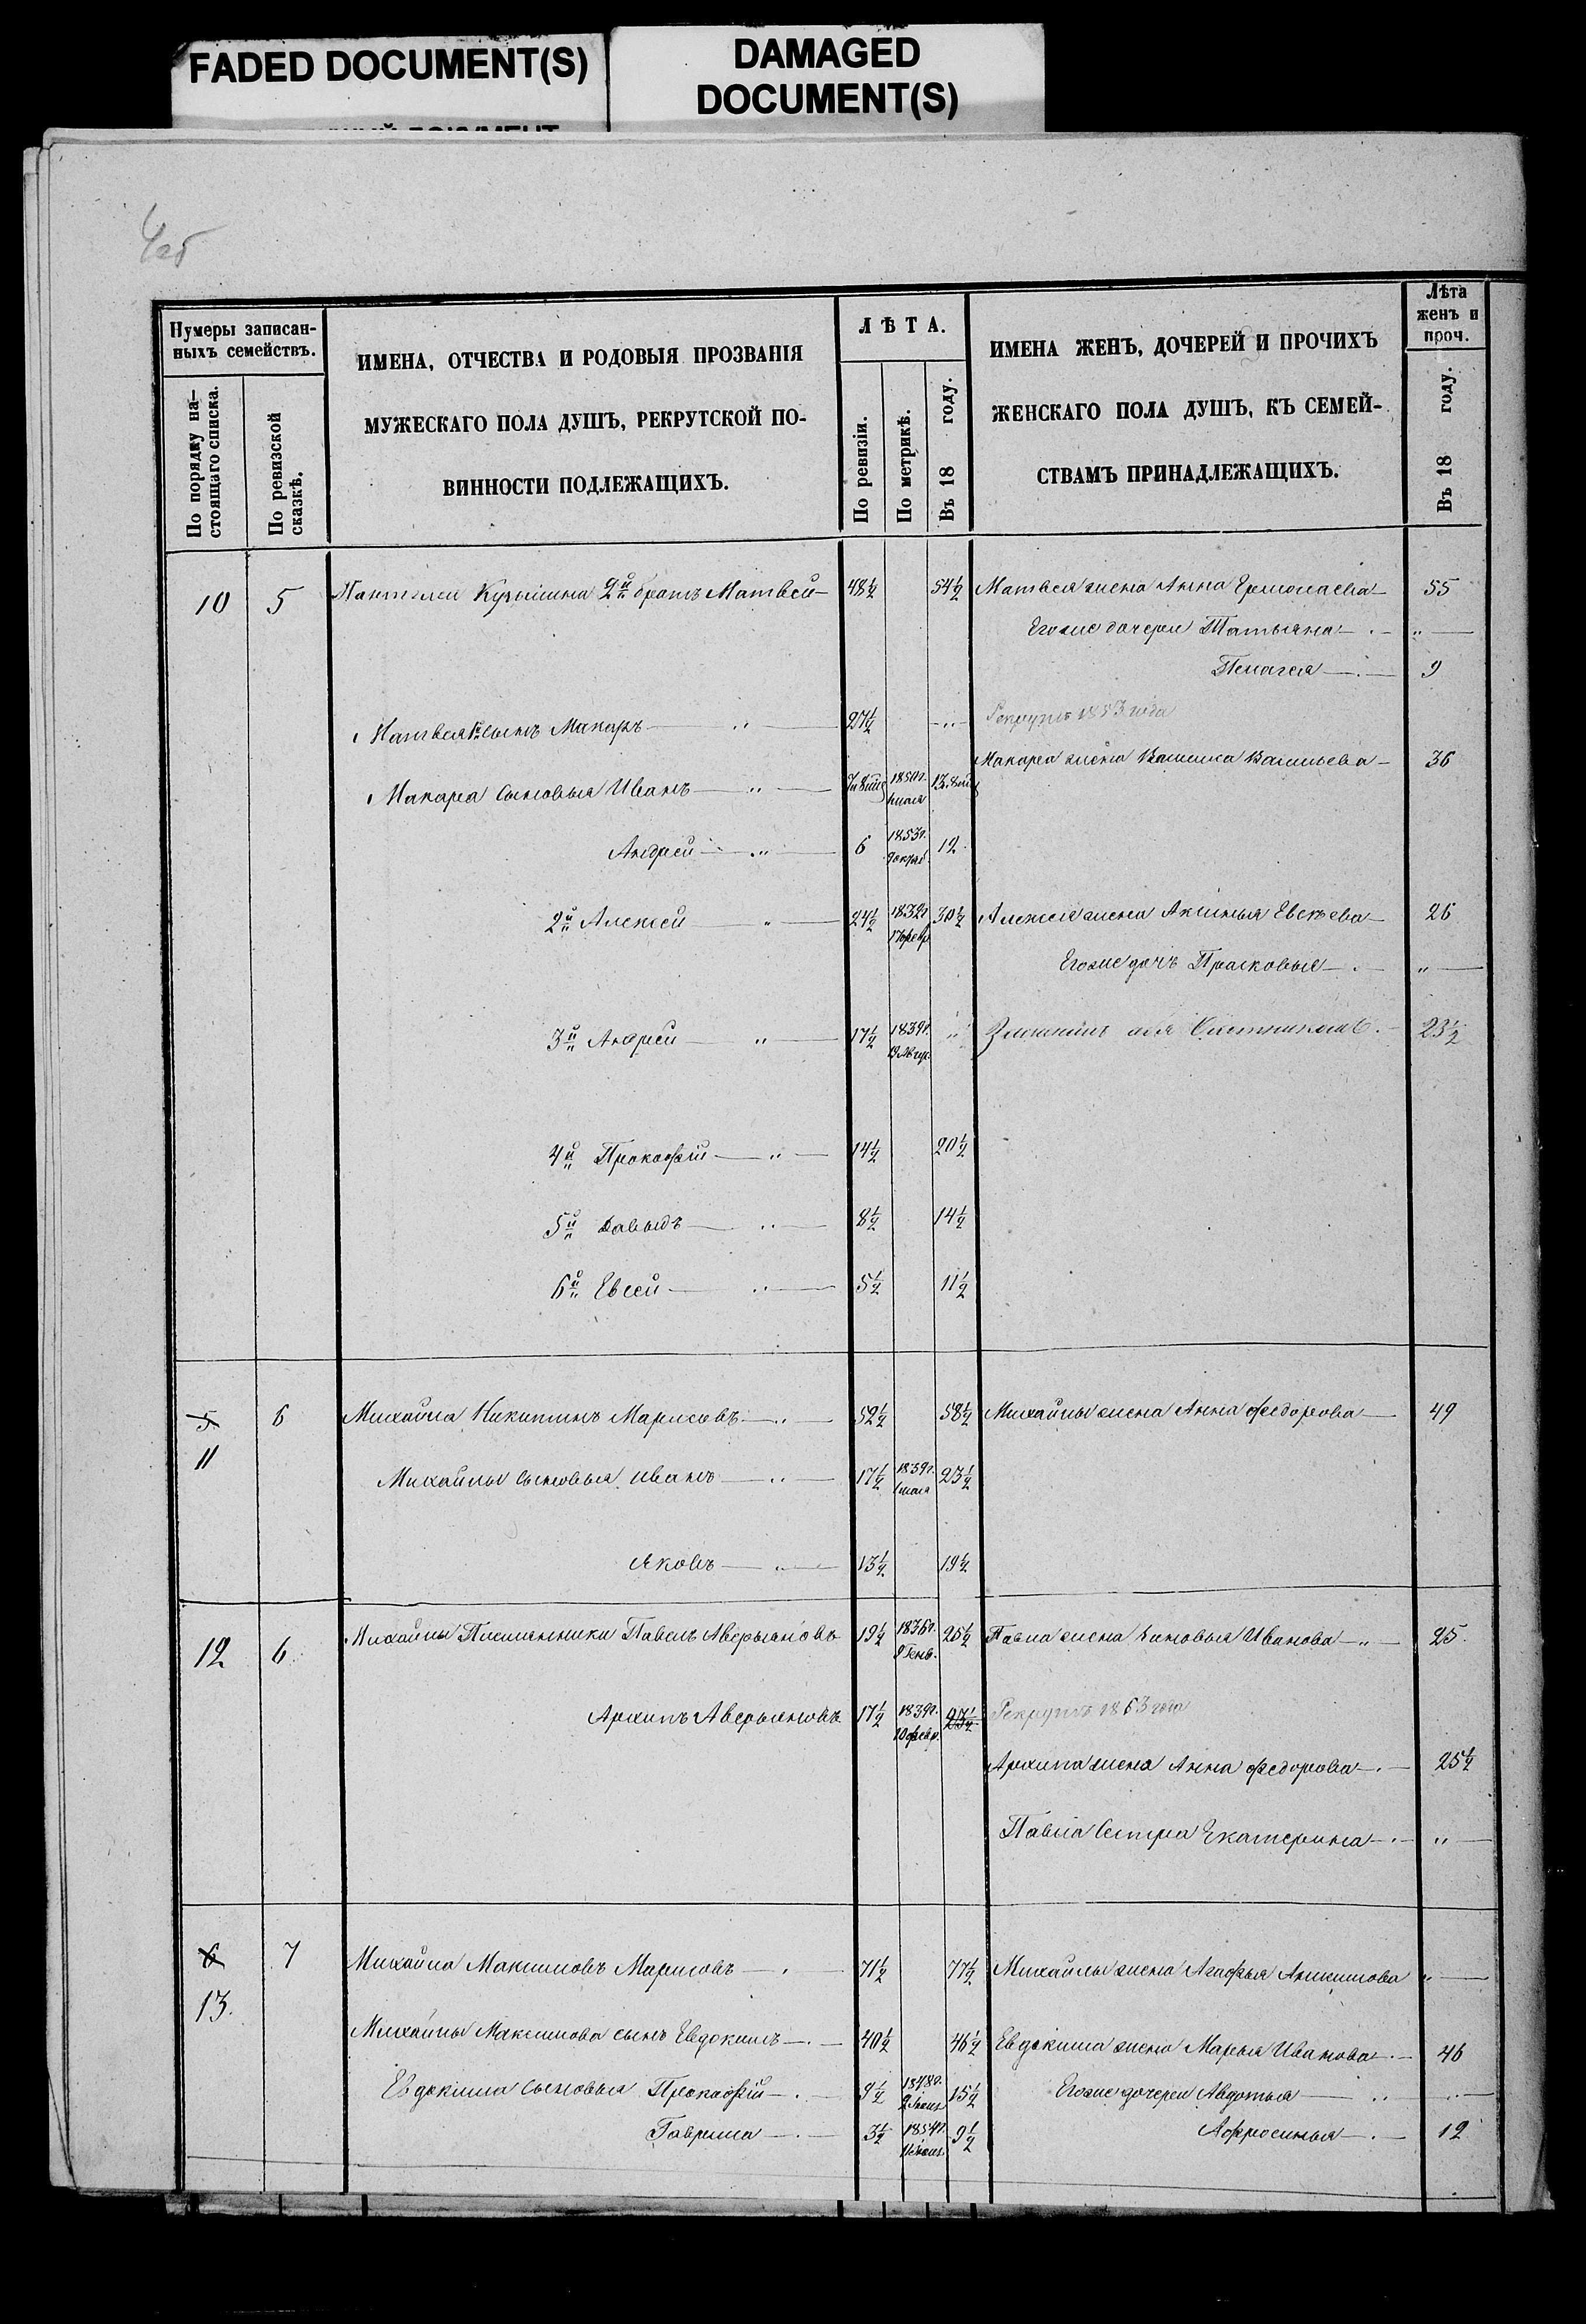 FADED DOCUMENT(S)
DAMAGED
DOCUMENT(S)
4об
Нумеры записан-
ныхъ семействъ.
По порядку на-
стоящаго списка.
По ревизской
сказкѣ.
ИМЕНА, ОТЧЕСТВА И РОДОВЫЯ ПРОЗВАНІЯ
МУЖЕСКАГО ПОЛА ДУШЪ, РЕКРУТСКОЙ ПО-
ВИННОСТИ ПОДЛЕЖАЩИХЪ.
ЛѢТА.
По ревизіи.
По метрикѣ.
Въ 18 году.
ИМЕНА ЖЕНЪ, ДОЧЕРЕЙ И ПРОЧИХЪ
ЖЕНСКАГО ПОЛА ДУШЪ, КЪ СЕМЕЙ-
СТВАМЪ ПРИНАДЛЕЖАЩИХЪ.
Лѣта
женъ и
проч.
Въ 18 году.
10 5 Пантелея Кузьмина 2й братъ Матвей 48½ 54½ Матвея жена Анна Ермолаева 55
Егоже дочери Татьяна "
Пелагея 9
Матвея 1й сынъ Макаръ " 27½ " Рекрутъ 1853 года
Макара жена Василиса Васильева 36
Макара сыновья Иванъ " 1850г.
Андрей " 6 1853г. 12
2й Алексей " 24½ 1832г 30½ Алексея жена Аксинья Евсеева 26
17 февр Егоже дочь Прасковья "
3й Андрей " 17½ 1839г. " 23½
19 Авгус.
4й Прокофій " 14½ 20½
5й Давыдъ " 8½ 14½
6й Евсей " 5½ 11½
5 6 Михайла Никитинъ Марисовъ " 52½ 58½ Михайлы жена Анна Федорова 49
11
Михайлы сыновья Иванъ " 17½ 1839г. 23½
Яковъ " 13½ 19½
12 6 Михайлы Племянники Павелъ Аверьяновъ 19½ 1836г. 25½ Павла жена Зиновья Иванова " 25
9 Генв.
Архипъ Аверьяновъ 17½ 1839г. 23½ Рекрутъ 1863 года
10 февр.
Архипа жена Анна Федорова 25½
Павла Сестра Екатерина "
6 7 Михайла Максимовъ Марисовъ 71½ 77½ Михайлы жена Агафья Анисимова "
13.
Михайлы Максимова сынъ Евдокимъ 40½ 46½ Евдокима жена Марья Иванова 46
Евдокима сыновья Прокофій 9½ 1848г. 15½ Егоже дочери Авдотья "
Гаврила 3½ 1854г 9½ Афросинья 12